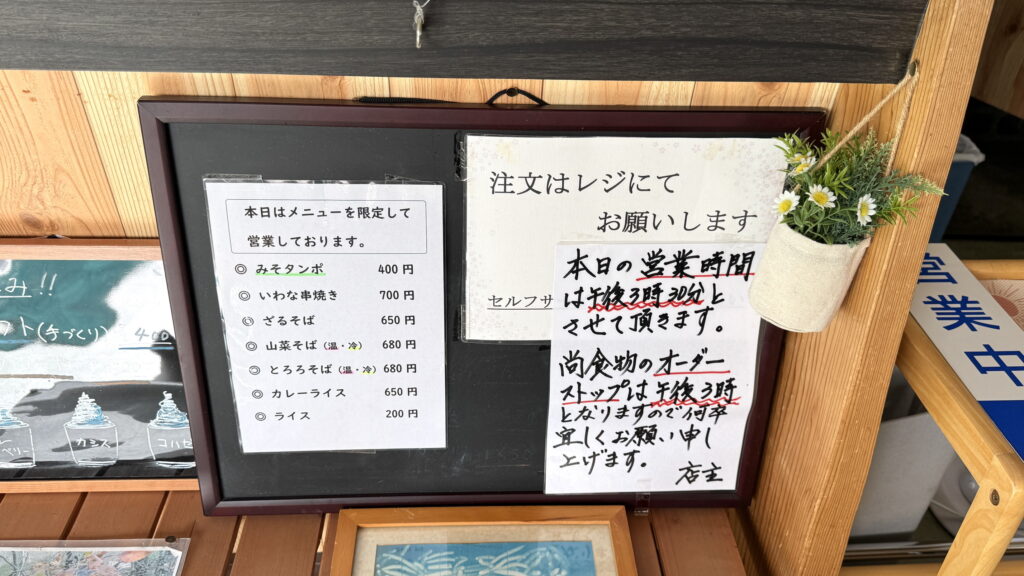 本日はメニューを限定して
営業しております。
◎ みそタンポ 400円
◎ いわな串焼き 700円
◎ ざるそば 650円
◎ 山菜そば（温・冷） 680円
◎ とろろそば（温・冷） 680円
◎ カレーライス 650円
◎ ライス 200円
注文はレジにて
お願いします
セルフサ
本日の営業時間
は午後3時30分と
させて頂きます。
尚食物のオーダー
ストップは午後3時
となりますので何卒
宜しくお願い申し
上げます。
店主
み!!
ト(手づくり) 400
ベリー
カシス
コハゼ
営業中